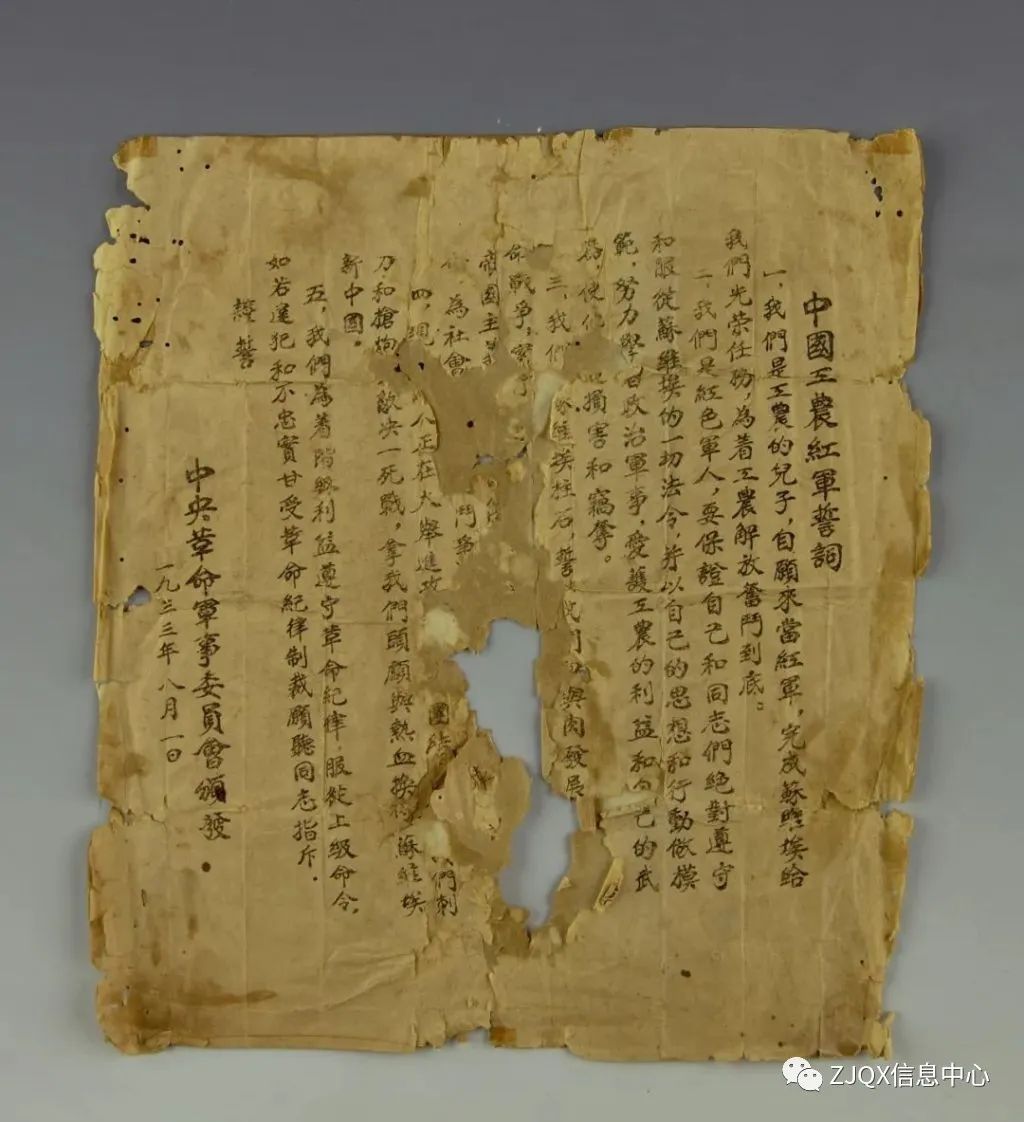 中國工農紅軍誓詞
一、我們是工農的兒子,自願來當紅軍,完成蘇維埃給
我們光荣任務,為着工農解放奮鬥到底。
二、我們是紅色軍人,要保證自己和同志們絕對遵守
和服從蘇維埃的一切法令,并以自己的思想和行動做模
範,努力學習政治軍事,愛護工農的利益和自己的武
器,使他 損害和竊奪。
三、我們 蘇維埃柱石,誓 與肉發展
命戰爭,實行
帝國主義
為社會 鬥爭
四、現 正在大舉進攻 團結 我們刺
刀和槍炮 敵決一死戰,拿我們頭顱與熱血換得蘇維埃
新中國。
五、我們為着階級利益遵守革命紀律,服從上級命令,
如若違犯和不忠實甘受革命紀律制裁願聽同志指斥。
謹誓
中央革命軍事委員會頒發
一九三三年八月一日
ZJQX信息中心